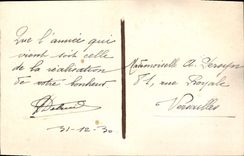 Que l'année qui
vient soit celle
de la réalisation
de votre bonheur
31-12-30
Mademoiselle A.
81, rue Royale
Versailles